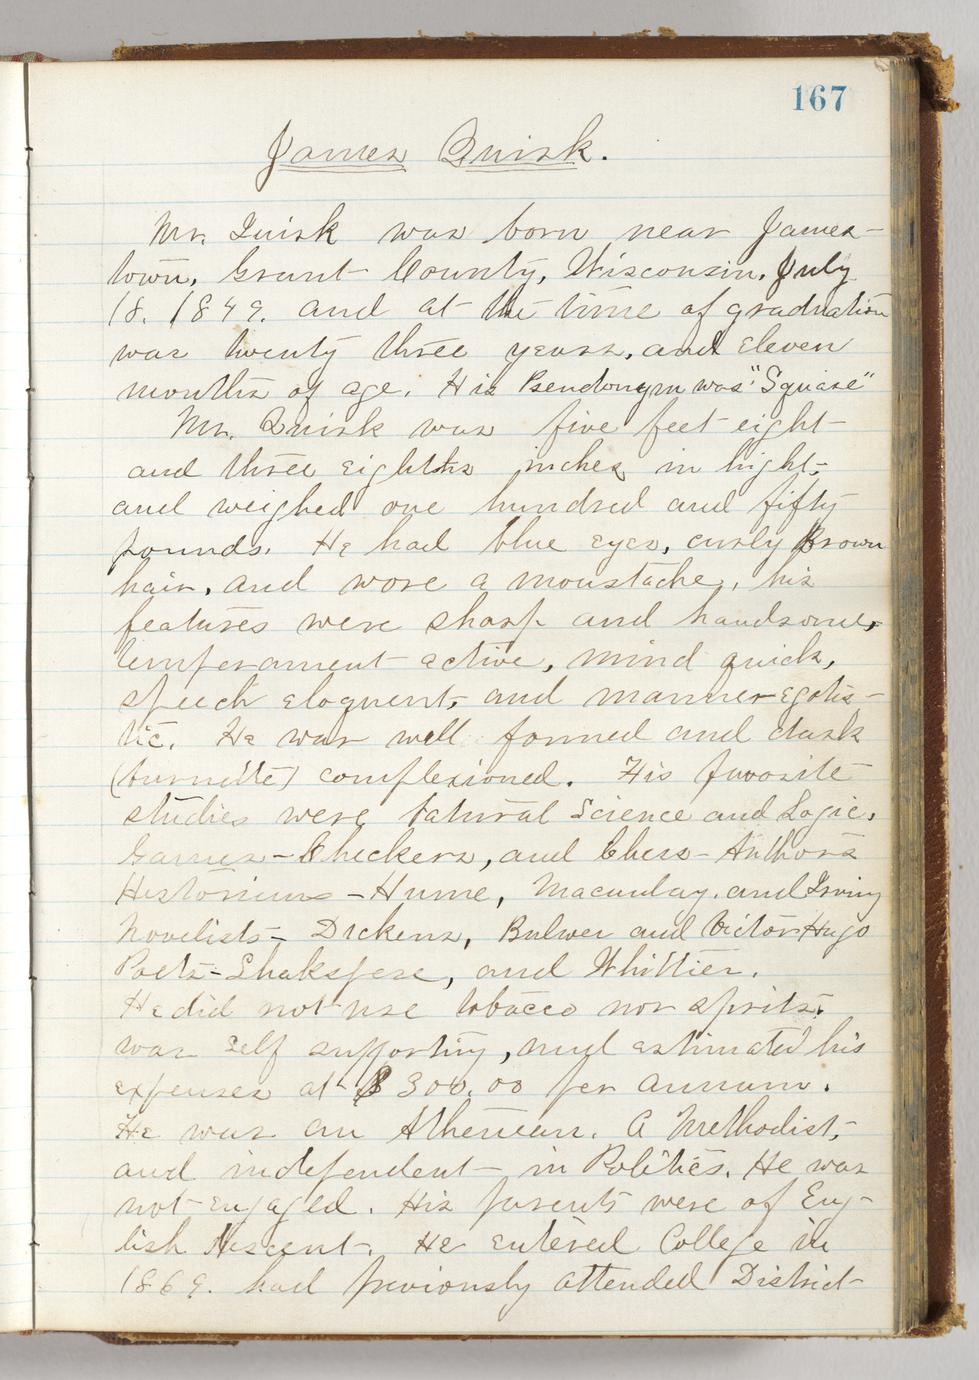 167
James Quirk.
Mr. Quirk was born near James-
town, Grant County, Wisconsin, July
18. 1849. and at the time of graduation
was twenty three years, and eleven
months of age. His Pseudonym was "Square"
Mr. Quirk was five feet eight
and three eighths inches in hight,
and weighed one hundred and fifty
pounds. He had blue eyes, curly Brown
hair, and wore a moustache, his
features were sharp and handsome,
temperament active, mind quick,
speech eloquent, and manner egotis-
tic. He was well formed and dark
(burnette) complexioned. His favorite
studies were Natural Science and Logic.
Games - Checkers, and Chess - Authors
Historians - Hume, Macaulay, and Irving
Novelists - Dickens, Bulwer and Victor Hugo
Poets - Shakspere, and Whittier.
He did not use tobacco nor sprits,
was self supporting, and estimated his
expenses at $300.00 per annum.
He was an Athenean. A Methodist,
and independent in Politics. He was
not engaged. His parents were of Eng-
lish Descent. He entered College in
1869. had previously attended District